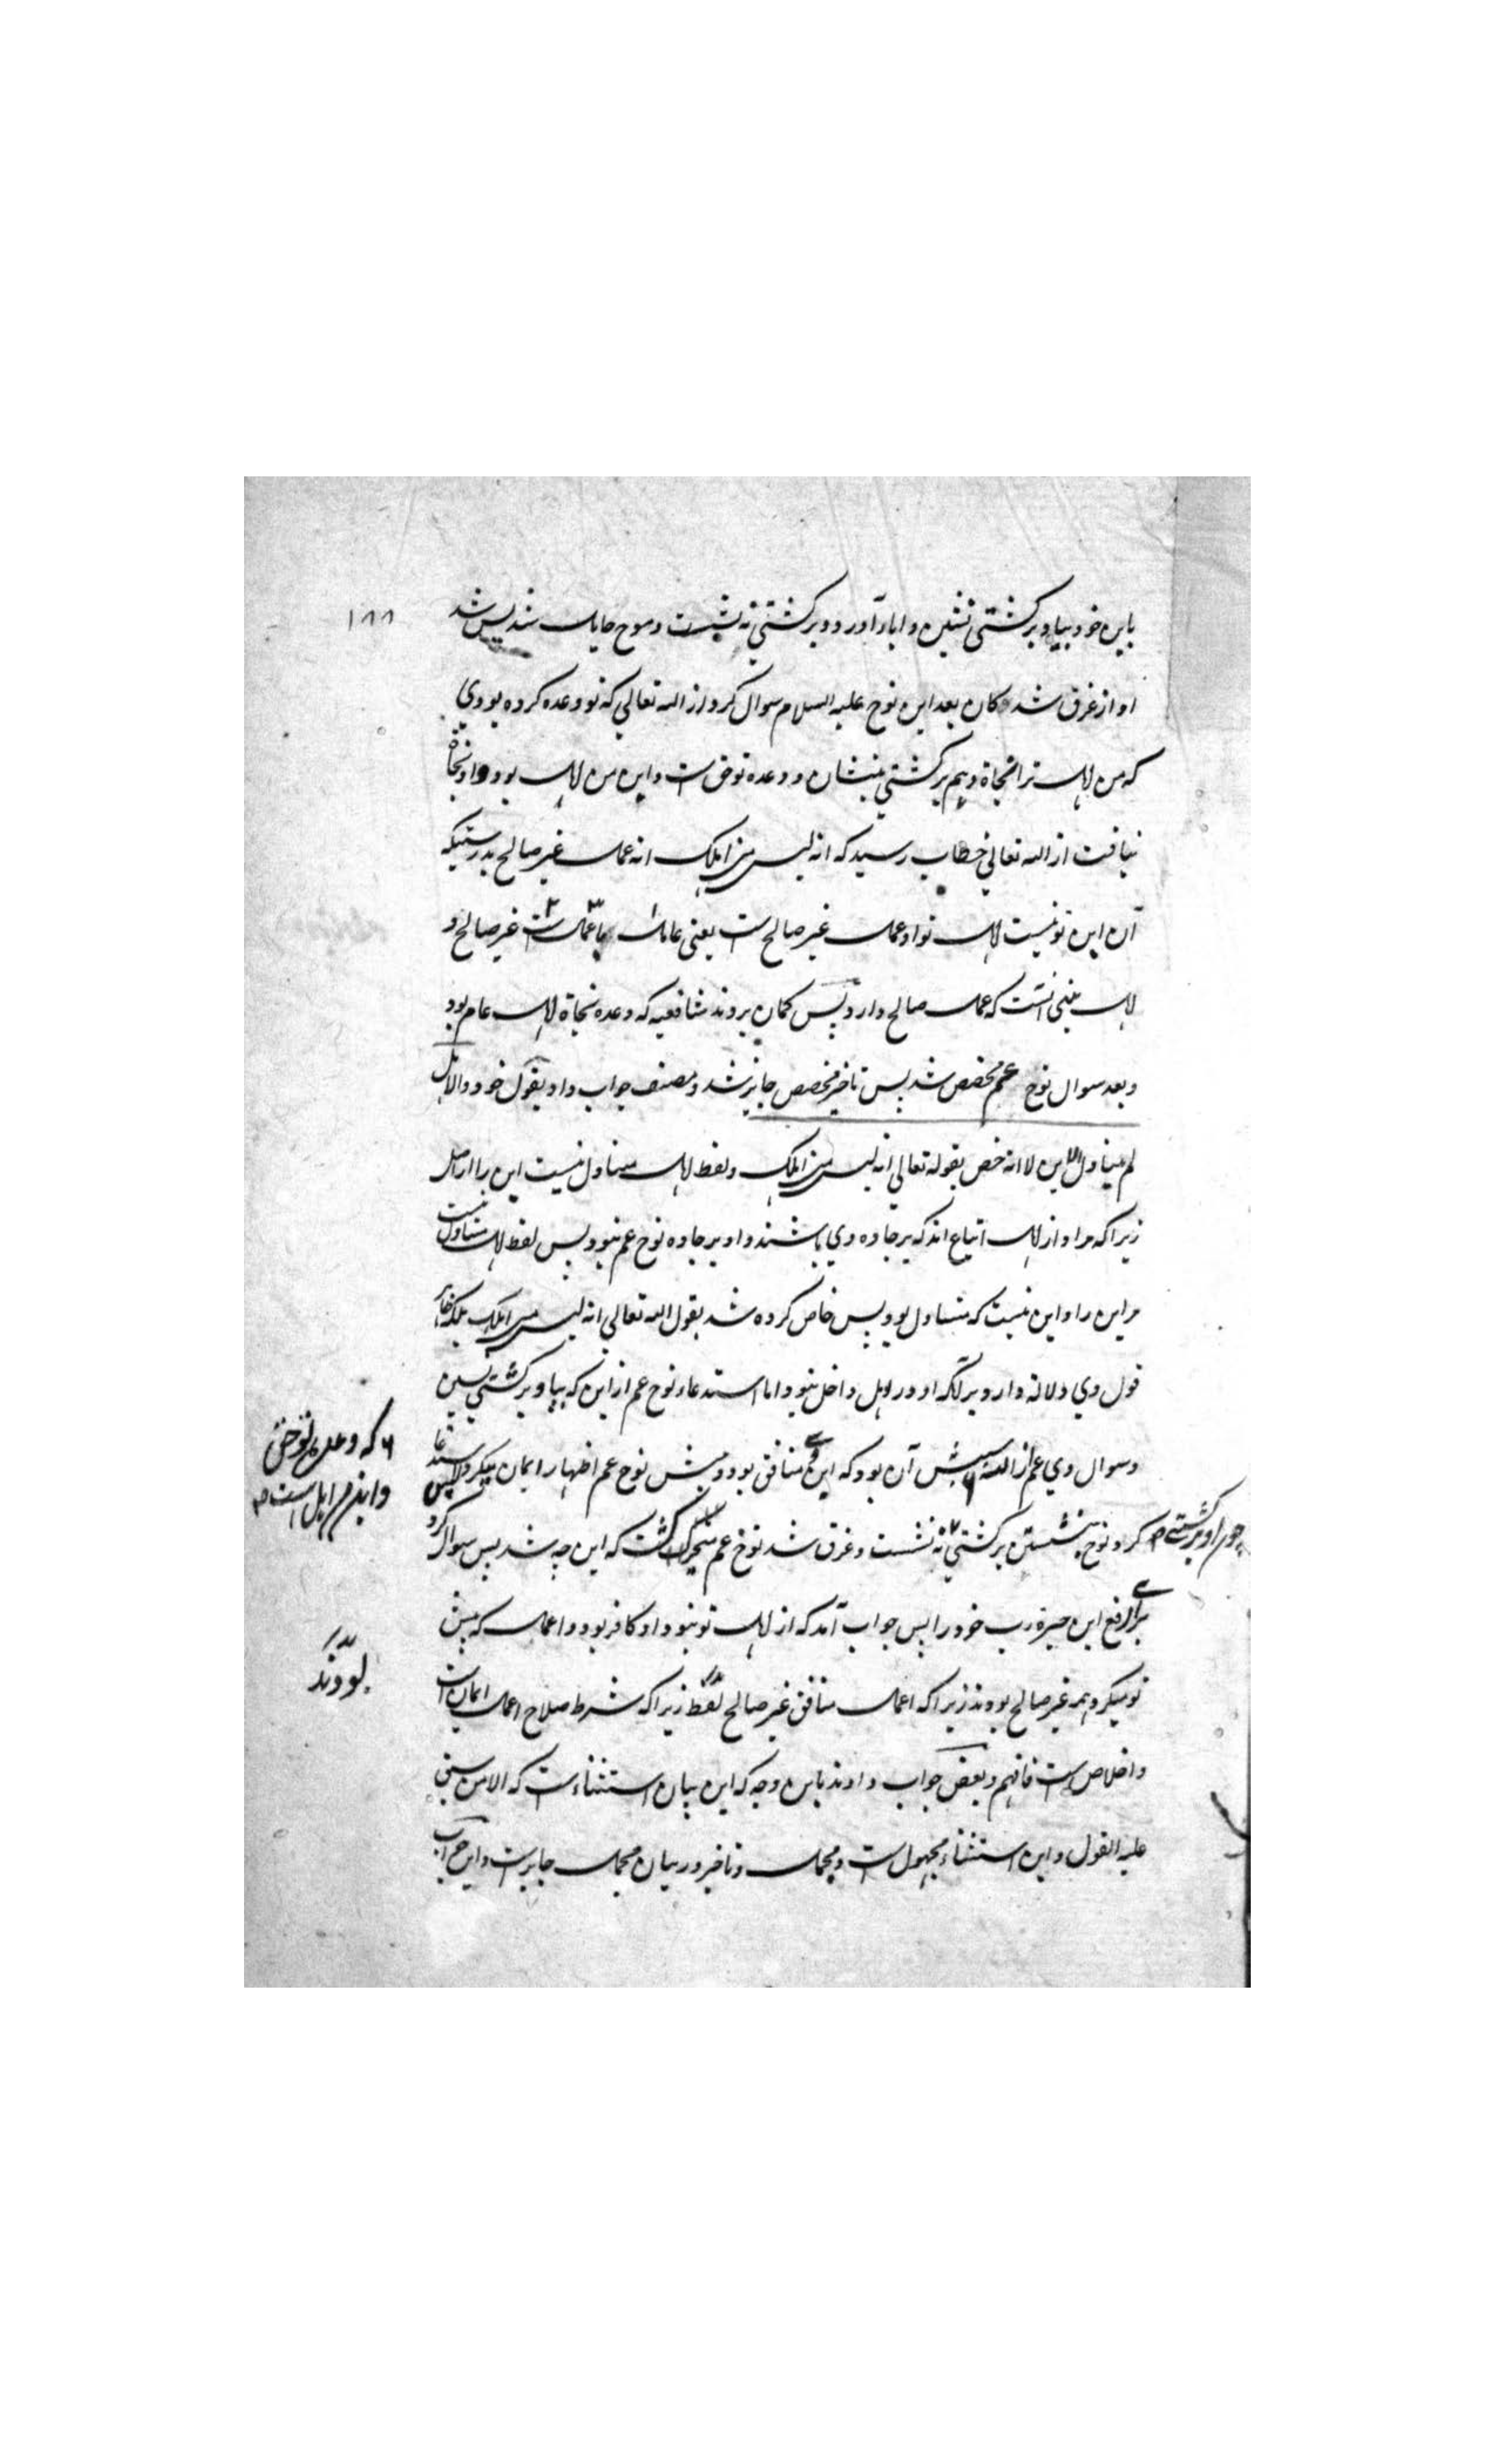 ۱۸۸
باین خود بیا و بر کشتی نشین و ابا آورد و بر کشتی نه نشست و موج حایل شد پس شد
او از غرق شدگان بعد این نوح علیه السلام سوال کرد از الله تعالی که تو وعده کرده بودی
که من اهل ترا نجاة دهم بر کشتی بنشان و وعده تو حق است و این من اهل بود و او نجاة
نیافت از الله تعالی خطاب رسید که انه لیس من اهلک انه عمل غیر صالح بدرستیکه
آن این تو نیست اهل تو او عمل غیر صالح است یعنی عامل با عمل است غیر صالح و
اهل یعنی آنست که عمل صالح دارد پس گمان بردند شافعیه که وعده نجاة اهل عام بود
و بعد سوال نوح عم مخصص شد پس تاخیر مخصص جایز شد و مصنف جواب داد بقول خود والاهل
لم یتناول الابن لا انه خص بقوله تعالی انه لیس من اهلک و لفظ اهل متناول نیست ابن را از اصل
زیرا که مراد از اهل اتباع اند که بر جاده وی باشند و او بر جاده نوح عم نبود پس لفظ اهل متناول نیست
مر ابن را و این نیست که متناول بود پس خاص کرده شد بقول الله تعالی انه لیس من اهلک بلکه
قول وی دلالة دارد بر آنکه او در اهل داخل نبود و اما استدعاء نوح عم از ابن که بیا و بر کشتی نشین
و سوال وی عم از الله سببش آن بود که ابن وی منافق بود و پیش نوح عم اظهار ایمان میکرد پس استدعا
که وعده تو حق
و ابنم از اهل است
کرد نوح بنشستن بر کشتی چون او بر کشتی نه نشست و غرق شد نوح عم متحیر گشت که این چه شد پس سوال کرد
برای رفع این حیرة رب خود را پس جواب آمد که از اهل تو نبود او کافر بود و اعمال که پیش
تو میکرد همه غیر صالح بودند زیرا که اعمال منافق غیر صالح فقط زیرا که شرط صلاح اعمال ایمان است
بودند
و اخلاص است فافهم و بعض جواب دادند باین وجه که این بیان استثناء است که الا من سبق
علیه القول و این استثناء مجهول است و مجمل و تاخیر در بیان مجمل جایز است و این جواب